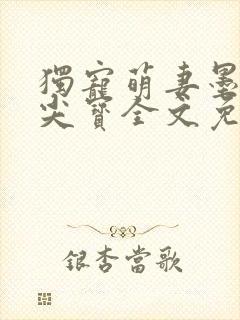 獨寵萌妻墨
尖寶全文免
銀杏當歌